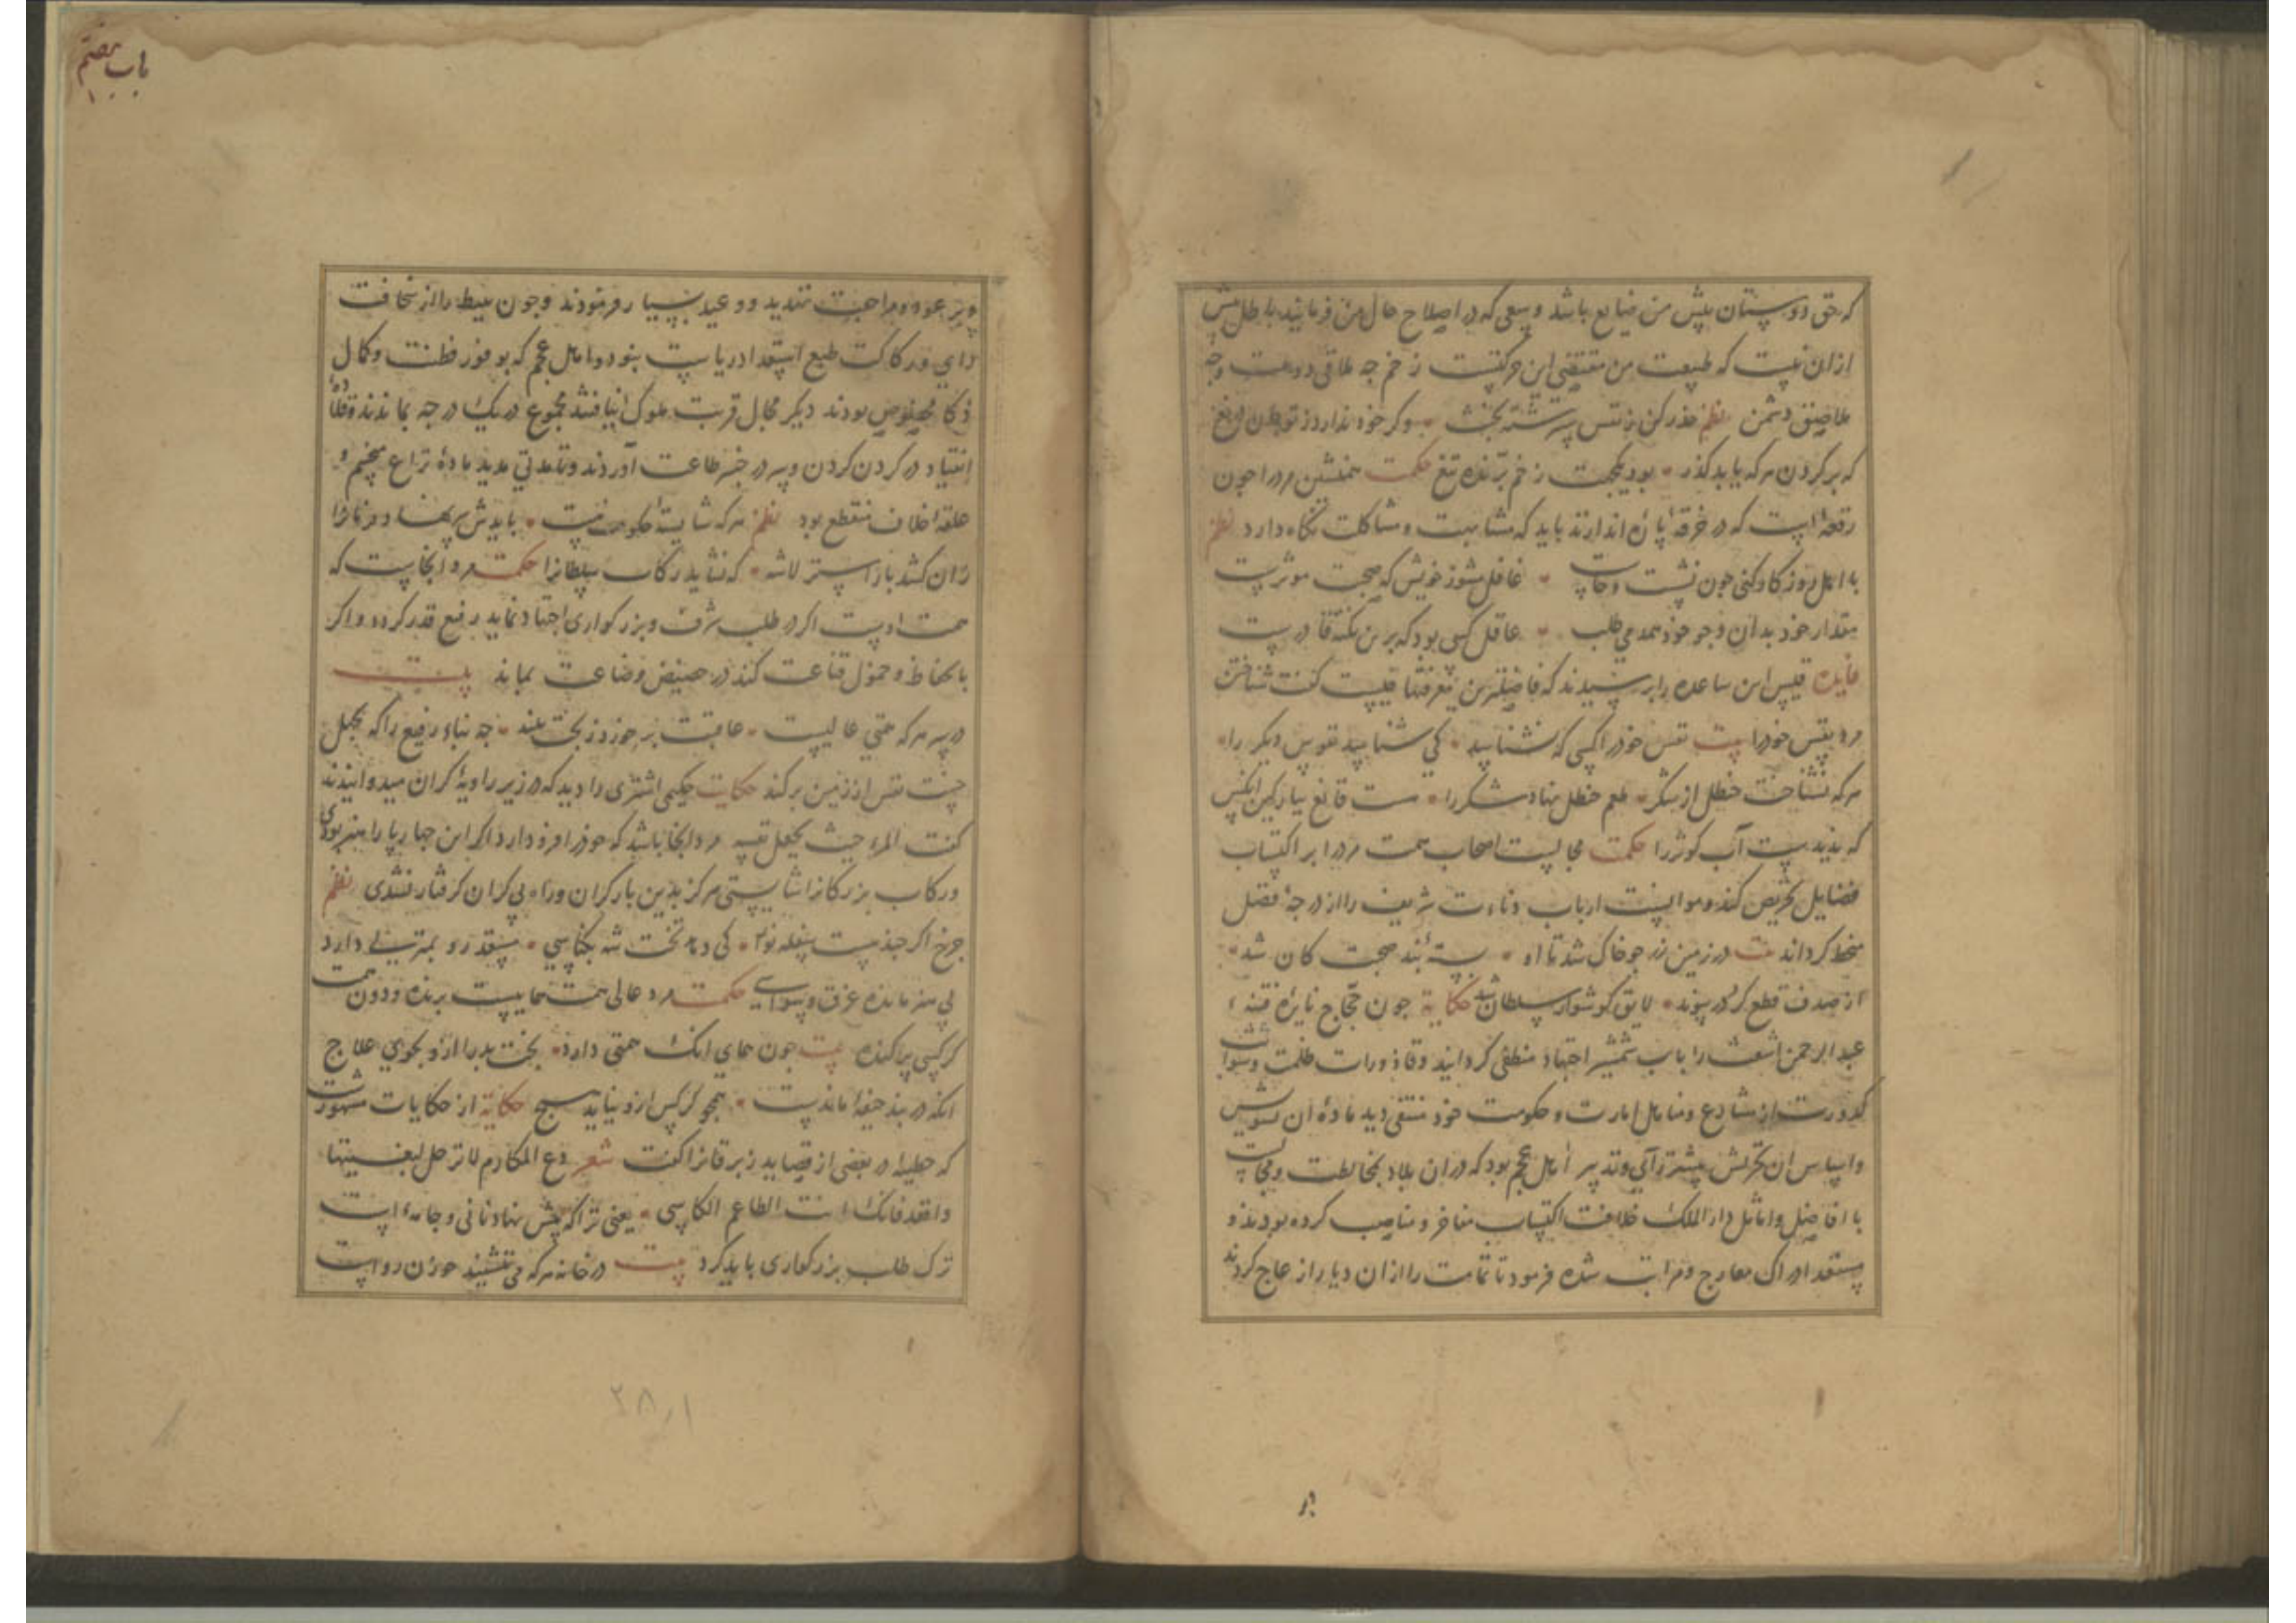 که حق دوستان پیش من ضایع باشد و سعی که در اصلاح حال من فرمائید باطل پیش
ازان نیست که طبیعت من مقتضی این حرکتست زخم چه ملاقی دوست وچه
ملاصق دشمن نظم حذر کن ز نفس سرشته بخبث وکر خود ندارد ز تو
که بر کردن هر که یابد کذر بود یکجهت زخم برّنده تیغ حکمت همنشین مرد را چون
رقعهٔ است که در خرقه پاره اندازند باید که مشابهت و مشاکلت نکاه دارد نظم
با اهل روزکار کنی چون نشست وخاست غافل مشو ز خویش که صحبت موثرست
مقدار خود بدان وچو خود همدمی طلب عاقل کسی بود که برین نکته قادرست
فایده قیس ابن ساعده را پرسیدند که فاضلترین معرفتها چیست کفت شناختن
مرد نفس خود را بیت نفس خود را کسی که نشناسد کی شناسد نفوس دیکر را
هر که نشناخت حنظل از شکر طعم حنظل نهاد شکر را هست قانع بپارکین آنکس
که ندیدست آب کوثر را حکمت مجالست اصحاب همت مرد را بر اکتساب
فضایل تحریص کند و موانست ارباب دناءت شریف را از درجهٔ فضل
منحط کرداند بیت در زمین زر چو خاک شد تا او بستهٔ بند صحبت کان شد
از صدف قطع کرد در پیوند لایق کوشوار سلطان شد حکایة چون حجّاج نایرهٔ فتنهٔ
عبد الرحمن اشعث را باب شمشیر اجتهاد منطفی کردانید وقاذورات ظلمت وشوائب
کدورت از مشارع ومناهل امارت و حکومت خود منتفی دید مادهٔ ان تشویش
واساس ان تحریش بیشتر زآی وتدبیر اهل عجم بود که دران بلاد بمخالطت ومجالست
با افاضل واماثل دار الملک خلافت اکتساب مفاخر ومناصب کرده بودند و
مستعد ادراک معارج ومراتب شده فرمود تا تمامت را ازان دیار ازعاج کردند
باب هفتم
وبر عود ومراجعت تهدید ووعید بسیار فرمودند وچون نبیط را از سخافت
رای ورکاکت طبع استعداد ریاست نبود واهل عجم که بوفور فطنت وکمال
ذکا مخصوص بودند دیکر مجال قربت ملوک نیافتند مجموع در یک درجه بماندند
انقیاد در کردن کردن وسر در چنبر طاعت آوردند وتا مدتی مدید مادهٔ نزاع منحسم و
علقهٔ خلاف منقطع بود نظم هر که شایستهٔ حکومت نیست بایدش سر نهاد
زان کشد باز استر لاشه که نشاید رکاب سلطانرا حکمت مرد آنجاست که
همت اوست اکر در طلب شرف وبزرکواری اجتهاد نماید رفیع قدر کردد واکر
بانحطاط وخمول قناعت کند در حضیض وضاعت بماند بیت
در سر هر که همتی عالیست عاقبت بر خورد ز بخت بلند چه بناء رفیع را که بجهل
خست نفس از زمین بر کند حکایت حکیمی اشتری را دید که در زیر راویهٔ کران میدوانیدند
کفت المرء حیث یجعل نفسه مرد آنجا باشد که خود را فرود آرد اکر این چهارپا را هنر بودی
ورکاب بزرکانرا شایستی هرکز بدین بار کران وراه بی کران کرفتار نشدی نظم
چرخ اکر چند هست سفله نواز کی دهد تخت شه بکناسی هنر وبهتری دارد
بی هنر مانده غرق وسواسی حکمت مرد عالی همت هماییست پرنده ودون همت
کرکسی پراکنده بیت چون همای آنک همتی دارد بخت بد را ازو بجوی علاج
انکه در بند جیفهٔ ماندست همچو کرکس ازو نیاید هیچ حکایة از حکایات مشهورست
که حطیئه در بعضی از قصاید زبرقانرا کفت شعر دع المکارم لا ترحل لبغیتها
واقعد فانک انت الطاعم الکاسی یعنی ترا که پیش نهاد نانی وجامهٔ است
ترک طلب بزرکواری باید کرد بیت در خانه هر که می نشیند رواست
۲۸۱